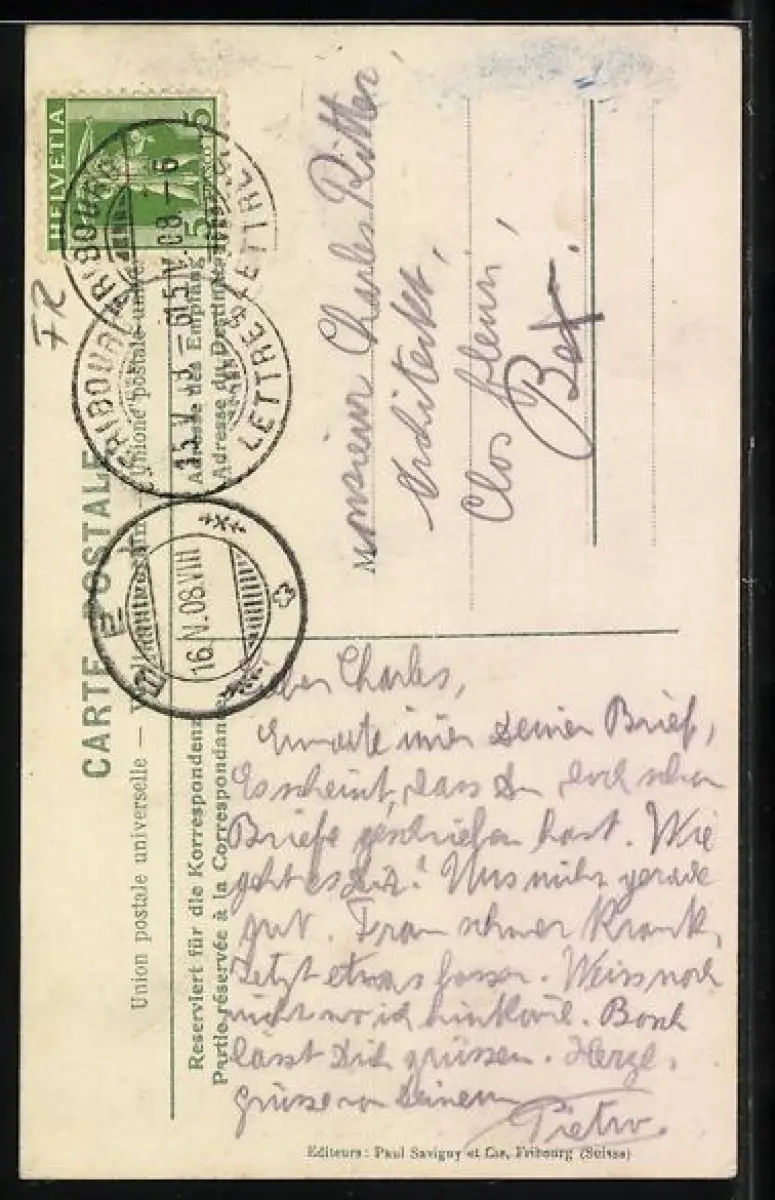 HELVETIA
5 FRANCO 5
FRIBOURG
15.V.08.-6
LETTRE
FRIBOURG
15.V.08.-6
LETTRE
FR
16.V.08.VIII
CARTE POSTALE
Union postale universelle —
Adresse des Empfang
Adresse du Destinat
Monsieur Charles Ritter,
Architekt,
Clos fleuri,
Bex.
Reserviert für die Korrespondenz
Partie réservée à la Correspondance
Charles,
Erwarte Deinen Brief,
Es scheint, dass Du doch schon
Briefe geschrieben hast. Wie
geht es Dir? Uns nicht gerade
gut. Frau schwer krank,
Jetzt etwas besser. Weiss noch
nicht wo ich hinkom. Bosch
lässt Dich grüssen. Herzl.
Grüsse von Deinem
Pietro.
Editeurs: Paul Savigny et Cie, Fribourg (Suisse)